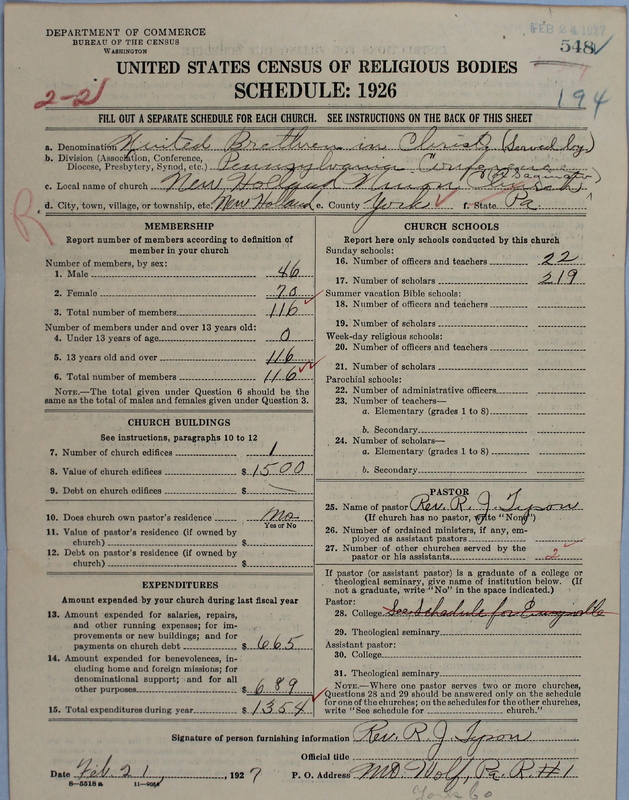 DEPARTMENT OF COMMERCE
BUREAU OF THE CENSUS
WASHINGTON
FEB 24 1927
548
194
2-2
UNITED STATES CENSUS OF RELIGIOUS BODIES
SCHEDULE: 1926
FILL OUT A SEPARATE SCHEDULE FOR EACH CHURCH. SEE INSTRUCTIONS ON THE BACK OF THIS SHEET
a. Denomination United Brethren in Christ (Served by)
b. Division (Association, Conference,
Diocese, Presbytery, Synod, etc.) Pennsylvania Conference
c. Local name of church New Holland Union Church
d. City, town, village, or township, etc. New Holland e. County York f. State Pa.
R
MEMBERSHIP
Report number of members according to definition of
member in your church
Number of members, by sex:
1. Male 46
2. Female 70
3. Total number of members 116
Number of members under and over 13 years old:
4. Under 13 years of age 0
5. 13 years old and over 116
6. Total number of members 116
NOTE.—The total given under Question 6 should be
same as the total of males and females given under Question 3.
CHURCH BUILDINGS
See instructions, paragraphs 10 to 12
7. Number of church edifices 1
8. Value of church edifices $1500
9. Debt on church edifices $
10. Does church own pastor's residence No
Yes or No
11. Value of pastor's residence (if owned by
church) $
12. Debt on pastor's residence (if owned by
church) $
EXPENDITURES
Amount expended by your church during last fiscal year
13. Amount expended for salaries, repairs,
and other running expenses; for im-
provements or new buildings; and for
payments on church debt $665
14. Amount expended for benevolences, in-
cluding home and foreign missions; for
denominational support; and for all
other purposes $689
15. Total expenditures during year $1354
CHURCH SCHOOLS
Report here only schools conducted by this church
Sunday schools:
16. Number of officers and teachers 22
17. Number of scholars 219
Summer vacation Bible schools:
18. Number of officers and teachers
19. Number of scholars
Week-day religious schools:
20. Number of officers and teachers
21. Number of scholars
Parochial schools:
22. Number of administrative officers
23. Number of teachers—
a. Elementary (grades 1 to 8)
b. Secondary
24. Number of scholars—
a. Elementary (grades 1 to 8)
b. Secondary
PASTOR
25. Name of pastor Rev. R. J. Tyson
(If church has no pastor, write "None")
26. Number of ordained ministers, if any, em-
ployed as assistant pastors
27. Number of other churches served by the
pastor or his assistants 2
If pastor (or assistant pastor) is a graduate of a college or
theological seminary, give name of institution below. (If
not a graduate, write "No" in the space indicated.)
Pastor:
28. College See Schedule for Emigsville
29. Theological seminary
Assistant pastor:
30. College
31. Theological seminary
NOTE.—Where one pastor serves two or more churches,
Questions 28 and 29 should be answered only on the schedule
for one of the churches; on the schedules for the other churches,
write "See schedule for church."
Signature of person furnishing information Rev. R. J. Tyson
Official title
Date Feb. 21, 1927 P. O. Address Mt. Wolf, Pa. R.#1
8-5518a
York Co